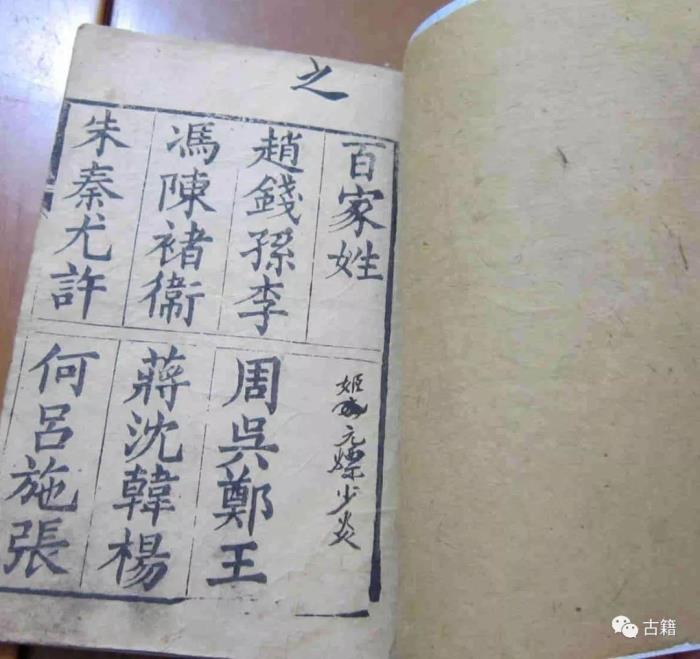 之
百家姓
趙錢孫李
周吳鄭王
馮陳褚衞
蔣沈韓楊
朱秦尤許
何呂施張
姬 元 少炎
古籍